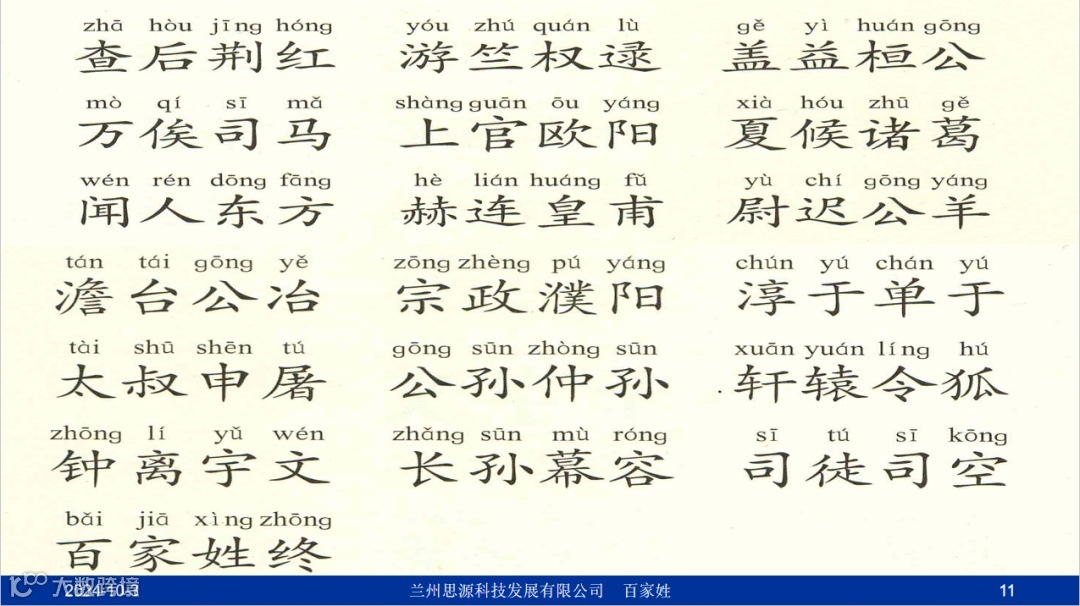 zhā hòu jīng hóng yóu zhú quán lù gě yì huán gōng
查后荆红 游竺权逯 盖益桓公
mò qí sī mǎ shàng guān ōu yáng xià hóu zhū gě
万俟司马 上官欧阳 夏候诸葛
wén rén dōng fāng hè lián huáng fǔ yù chí gōng yáng
闻人东方 赫连皇甫 尉迟公羊
tán tái gōng yě zōng zhèng pú yáng chún yú chán yú
澹台公冶 宗政濮阳 淳于单于
tài shū shēn tú gōng sūn zhòng sūn xuān yuán líng hú
太叔申屠 公孙仲孙 轩辕令狐
zhōng lí yǔ wén zhǎng sūn mù róng sī tú sī kōng
钟离宇文 长孙幕容 司徒司空
bǎi jiā xìng zhōng
百家姓终
大数跨境
2024-10-3 兰州思源科技发展有限公司 百家姓 11